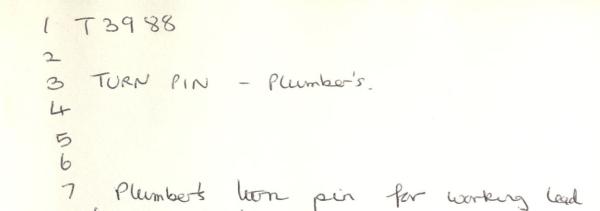 1 T3988
2
3 TURN PIN - Plumber's.
4
5
6
7 Plumber's turn pin for working lead